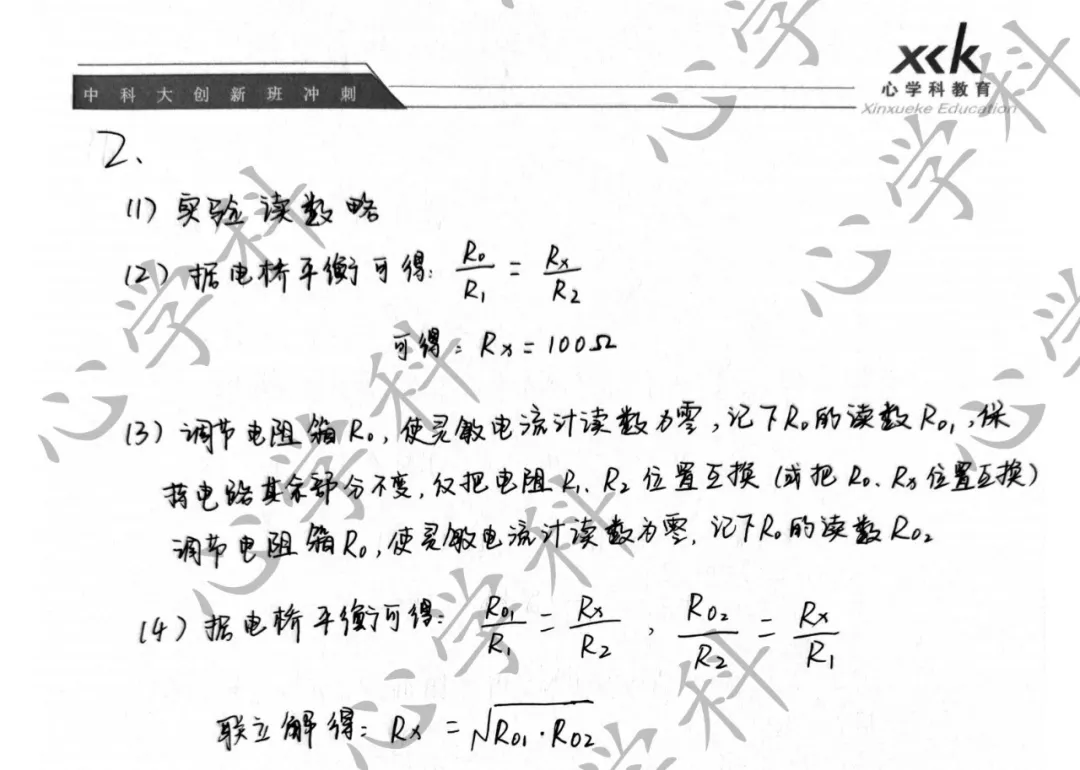 中科大创新班冲刺
xxk
心学科教育
Xinxueke Education
2、
(1) 实验读数略
(2) 据电桥平衡可得: R₀/R₁ = Rx/R₂
可得: Rx = 100Ω
(3) 调节电阻箱R₀, 使灵敏电流计读数为零, 记下R₀的读数R₀₁, 保
持电路其余部分不变, 仅把电阻R₁、R₂位置互换 (或把R₀、Rx位置互换)
调节电阻箱R₀, 使灵敏电流计读数为零, 记下R₀的读数R₀₂
(4) 据电桥平衡可得: R₀₁/R₁ = Rx/R₂, R₀₂/R₂ = Rx/R₁
联立解得: Rx = √(R₀₁·R₀₂)
心学科
心学科
心学科
心学科
心学科
心学科